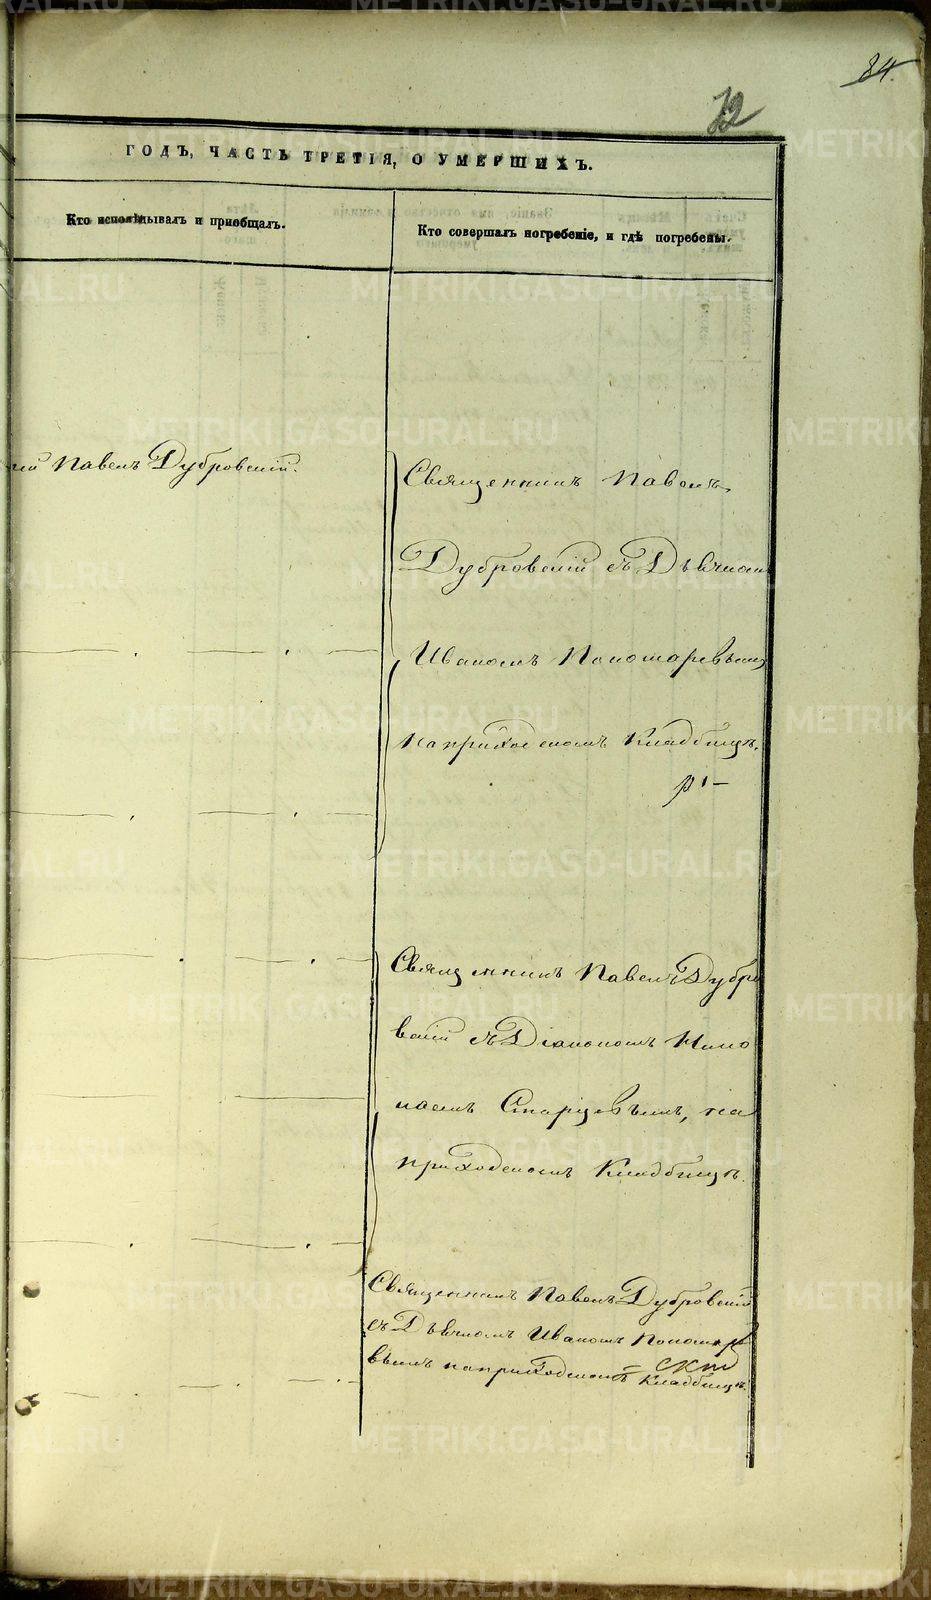 84.
72
ГОДЪ, ЧАСТЬ ТРЕТІЯ, О УМЕРШИХЪ.
Кто исповѣдывалъ и пріобщалъ.
Кто совершалъ погребеніе, и гдѣ погребены.
Павелъ Дубровскій.
Священникъ Павелъ
Дубровскій съ Дьячкомъ
Иваномъ Пономаревымъ
на приходскомъ Кладбищѣ.
Священникъ Павелъ Дубро
вскій съ Діакономъ Нико
лаемъ Старцевымъ, на
приходскомъ Кладбищѣ.
Священникъ Павелъ Дубровскій
съ Дьячкомъ Иваномъ Понамаре
вымъ на приходскомъ Кладбищѣ.
METRIKI.GASO-URAL.RU